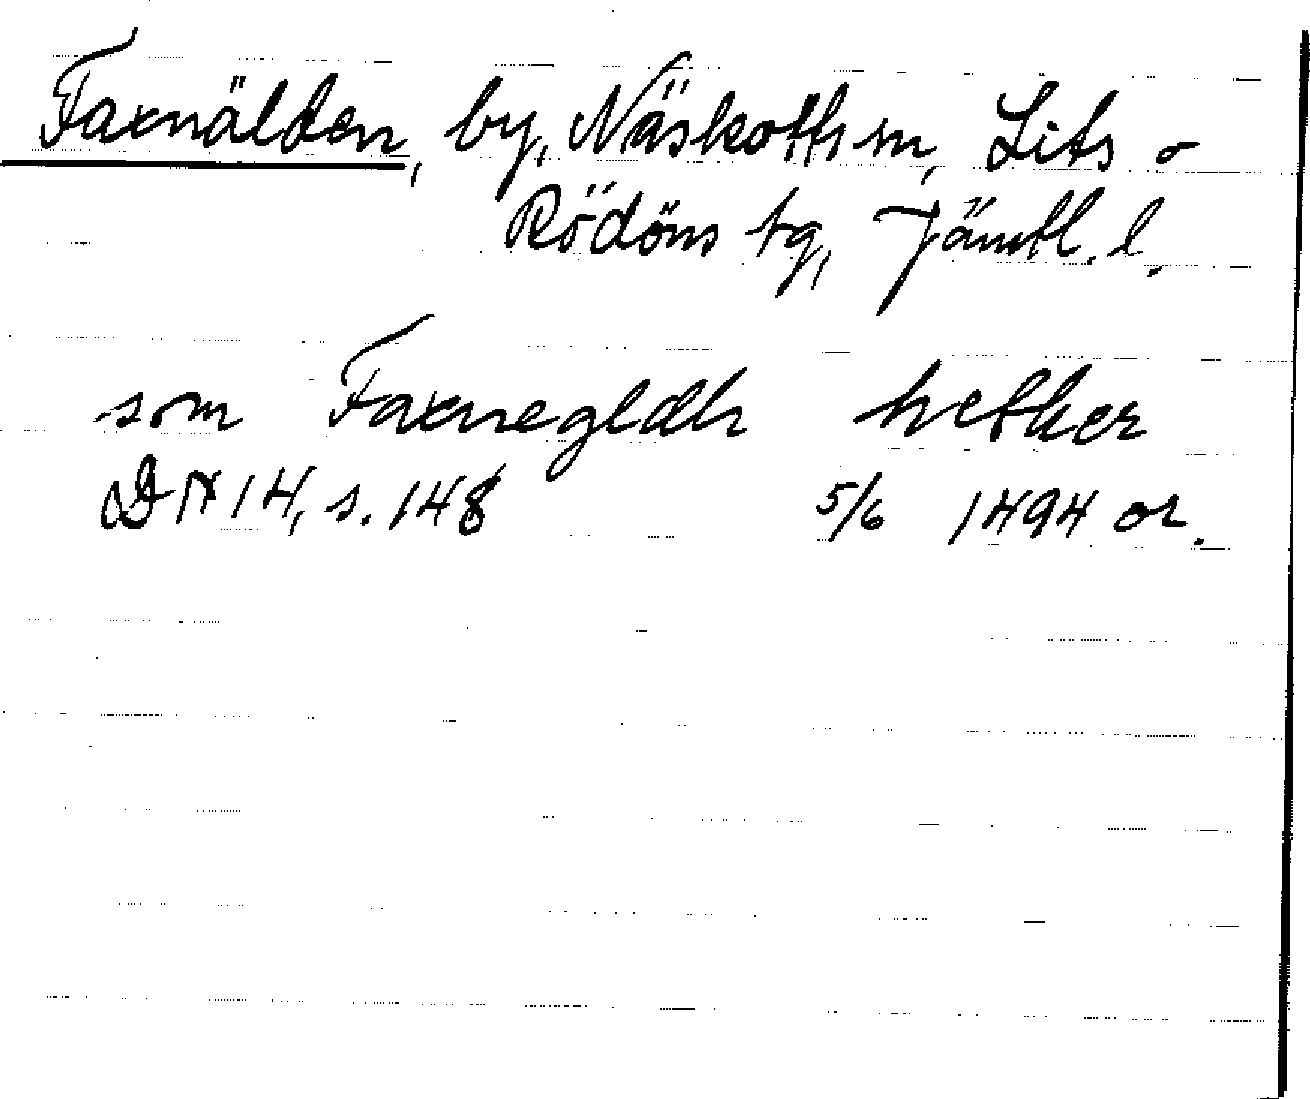 Faxnälden, by, Näskotts sn, Lits o
Rödöns tg, Jämtl. l.
som Faxnegldh hether
DN 14, s. 148 5/6 1494 or.